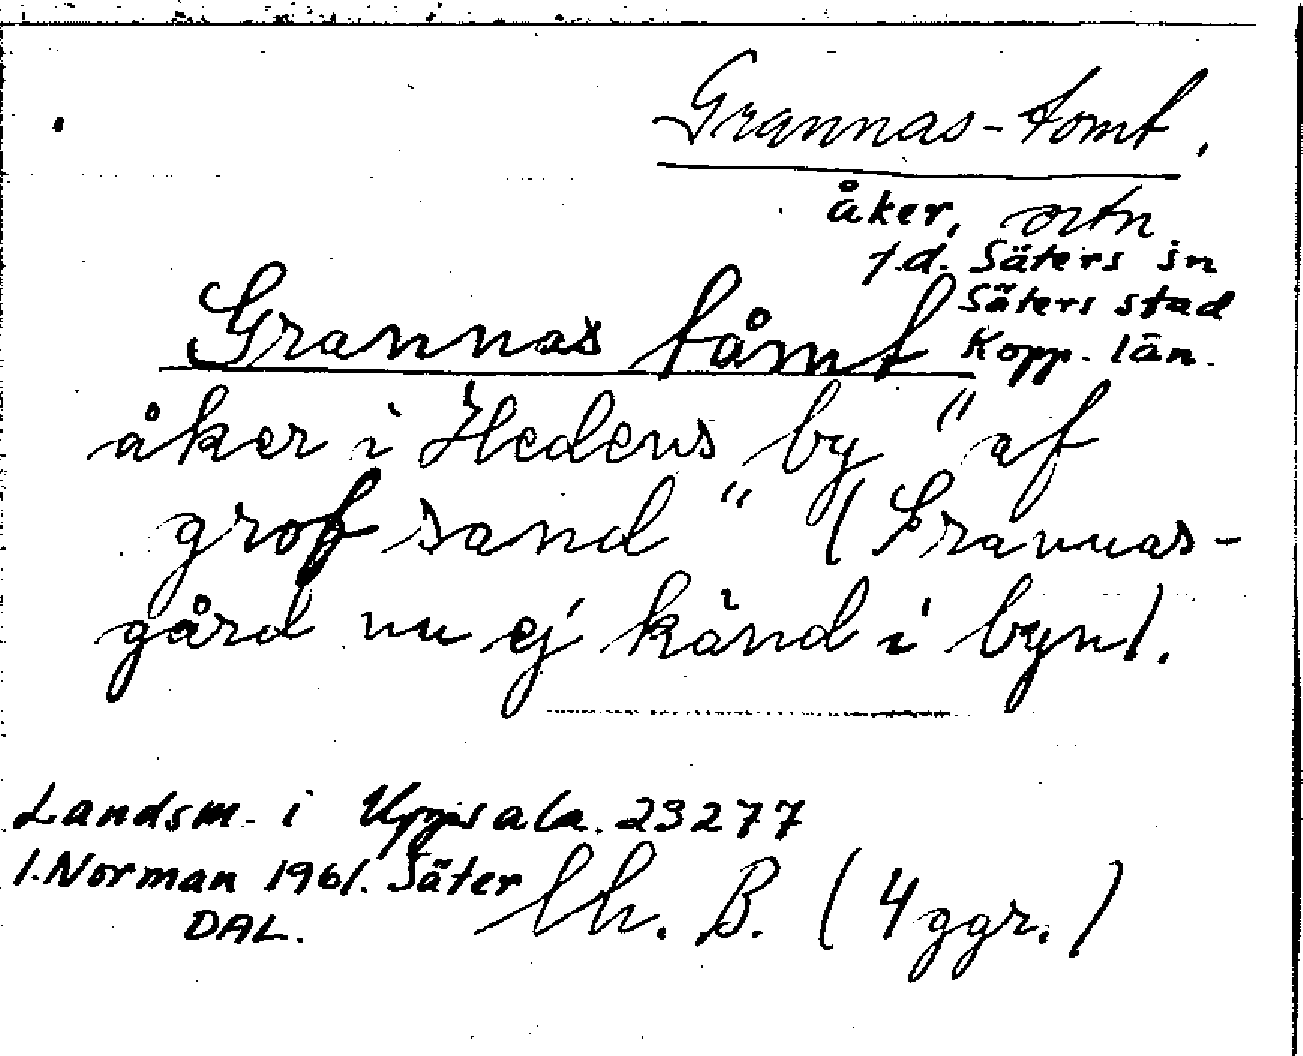 Grannas-tomt.
åker, ortn
f.d. Säters sn
Säters stad
Kopp. län.
Grannas tåmt
åker i Hedens by "af
grof sand" (Grannas-
gård nu ej känd i byn).
Landsm. i Uppsala. 23277
I. Norman 1961. Säter
DAL.
B. (4 ggr.)